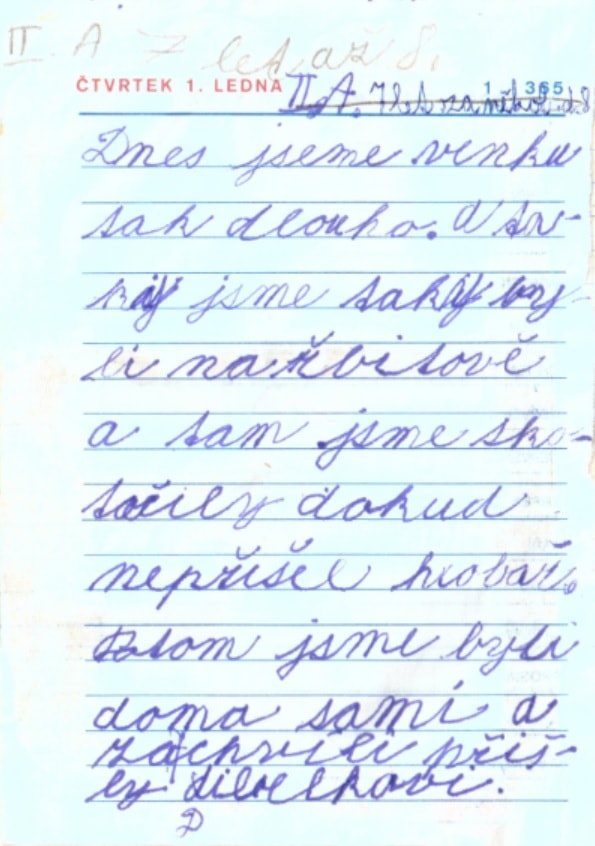 II A 7 let až 8.
ČTVRTEK 1. LEDNA II. A. 7 let za 1 365
Dnes jseme venku
tak dlouho.
jsme by-
li na řbitově
a tam jsme sko-
točily dokud
nepřišel hrobař.
Potom jsme byli
doma sami a
zachvíli přiš-
ly
D